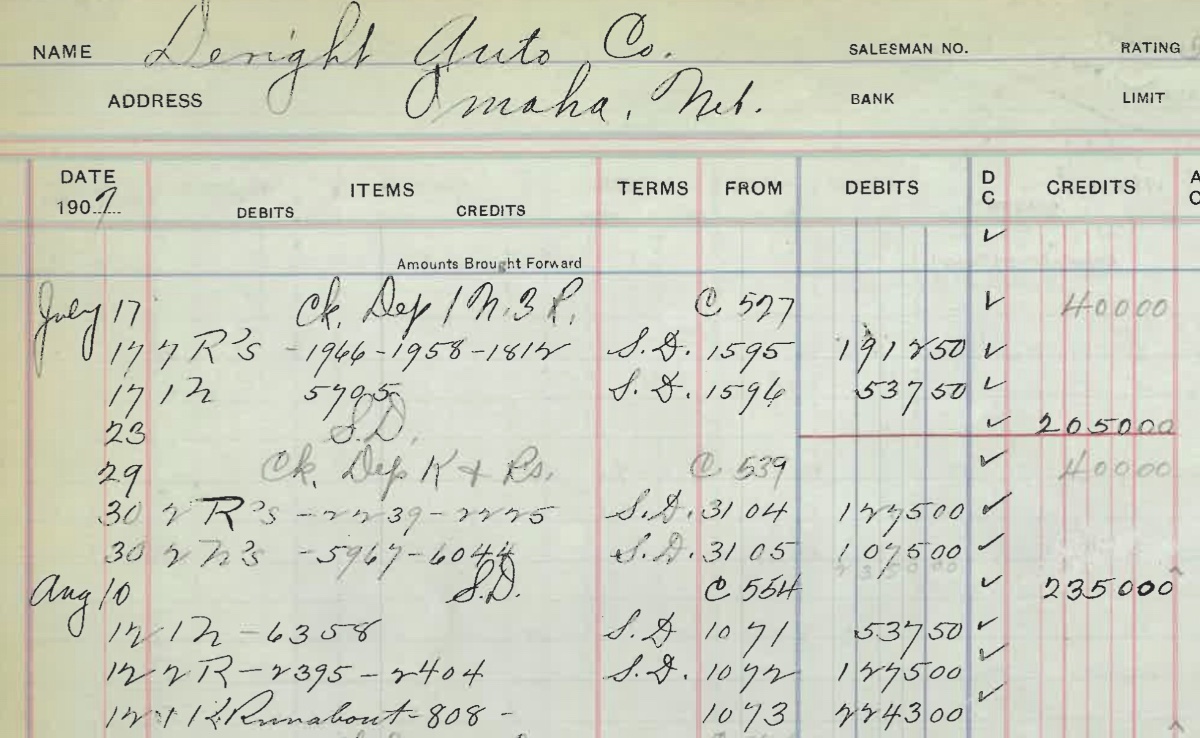 NAME Deright Auto Co. SALESMAN NO. RATING
ADDRESS Omaha, Neb. BANK LIMIT
DATE ITEMS TERMS FROM DEBITS D C CREDITS
1907 DEBITS CREDITS
✓
Amounts Brought Forward
July 17 Ck. Dep 1 N. 3 R. C 527 ✓ 40000
17 3 R's -1966-1958-1812 S.D. 1595 191250 ✓
17 1 N 5705 S.D. 1596 53750 ✓
23 S.D. ✓ 205000
29 Ck. Dep K + Rs. C 539 ✓ 40000
30 2 R's -2239-2225 S.D. 3104 127500 ✓
30 2 N's -5967-6044 S.D. 3105 107500 ✓
235000
Aug 10 S.D. C 554 ✓ 235000
12 1 N - 6358 S.D 1071 53750 ✓
12 2 R - 2395 - 2404 S.D. 1072 127500 ✓
12 1 K Runabout - 808 - 1073 224300 ✓